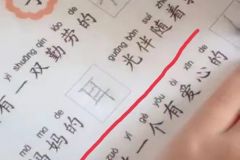 yì shuāng qín láo de
有一双勤劳的
mā ma de guāng bàn suí zhe
妈妈的耳光伴随着
yí gè yǒu ài xīn de
一个有爱心的